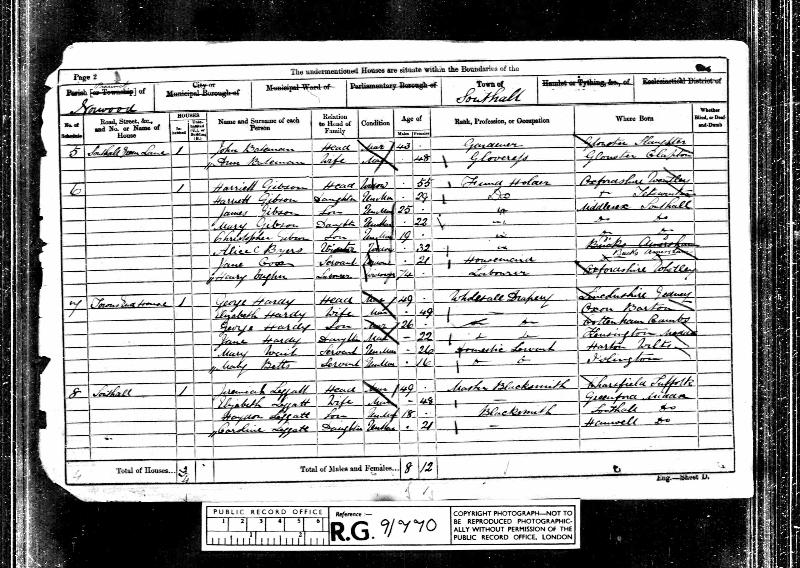 Page 2
The undermentioned Houses are situate within the Boundaries of the
Parish [or Township] of
Norwood
City or Municipal Borough of
Municipal Ward of
Parliamentary Borough of
Town of
Southall
Hamlet or Tything, &c., of
Ecclesiastical District of
No. of Schedule
Road, Street, &c., and No. or Name of House
HOUSES
Name and Surname of each Person
Relation to Head of Family
Condition
Age of
Males Females
Rank, Profession, or Occupation
Where Born
Whether Blind, or Deaf-and-Dumb
5 Southall Lane 1 John Bateman Head Mar 43 Gardener Gloster Slaughter
Ann Bateman Wife Mar 48 Gloveress Gloster
6 1 Harriett Gibson Head 55 Fund Holder Oxfordshire
Harriett Gibson Daughter Unmar 29 Do
James Gibson Son Unmar 25 Middlesex Southall
Mary Gibson Daughter Unmar 22
Christopher Gibson Son Unmar 19
Alice C Byers 32 Bucks
Jane Servant 21 Housemaid Bucks
Henry Lodger 74 Labourer Oxfordshire
7 House 1 George Hardy Head Mar 49 Wholesale Drapery Lincolnshire Gedney
Elizabeth Hardy Wife Mar 49 Oxon Barton
George Hardy Son 26 Cottenham Cambs
Jane Hardy Daughter 22 Kensington
Mary Servant Unmar 26 Domestic Servant Wilts
Mary Betts Servant Unmar 16 Islington
8 Southall 1 Jeremiah Leggatt Head Mar 49 Master Blacksmith Suffolk
Elizabeth Leggatt Wife Mar 48 Greenford Middx
Leggatt Son 18 Blacksmith Southall Do
Caroline Leggatt Daughter 21 Hanwell Do
Total of Houses... 3
Total of Males and Females... 8 12
Eng.—Sheet D.
PUBLIC RECORD OFFICE
1 2 3 4 5 6
1 2
Reference:-
R.G. 9/770
COPYRIGHT PHOTOGRAPH—NOT TO
BE REPRODUCED PHOTOGRAPHIC-
ALLY WITHOUT PERMISSION OF THE
PUBLIC RECORD OFFICE, LONDON